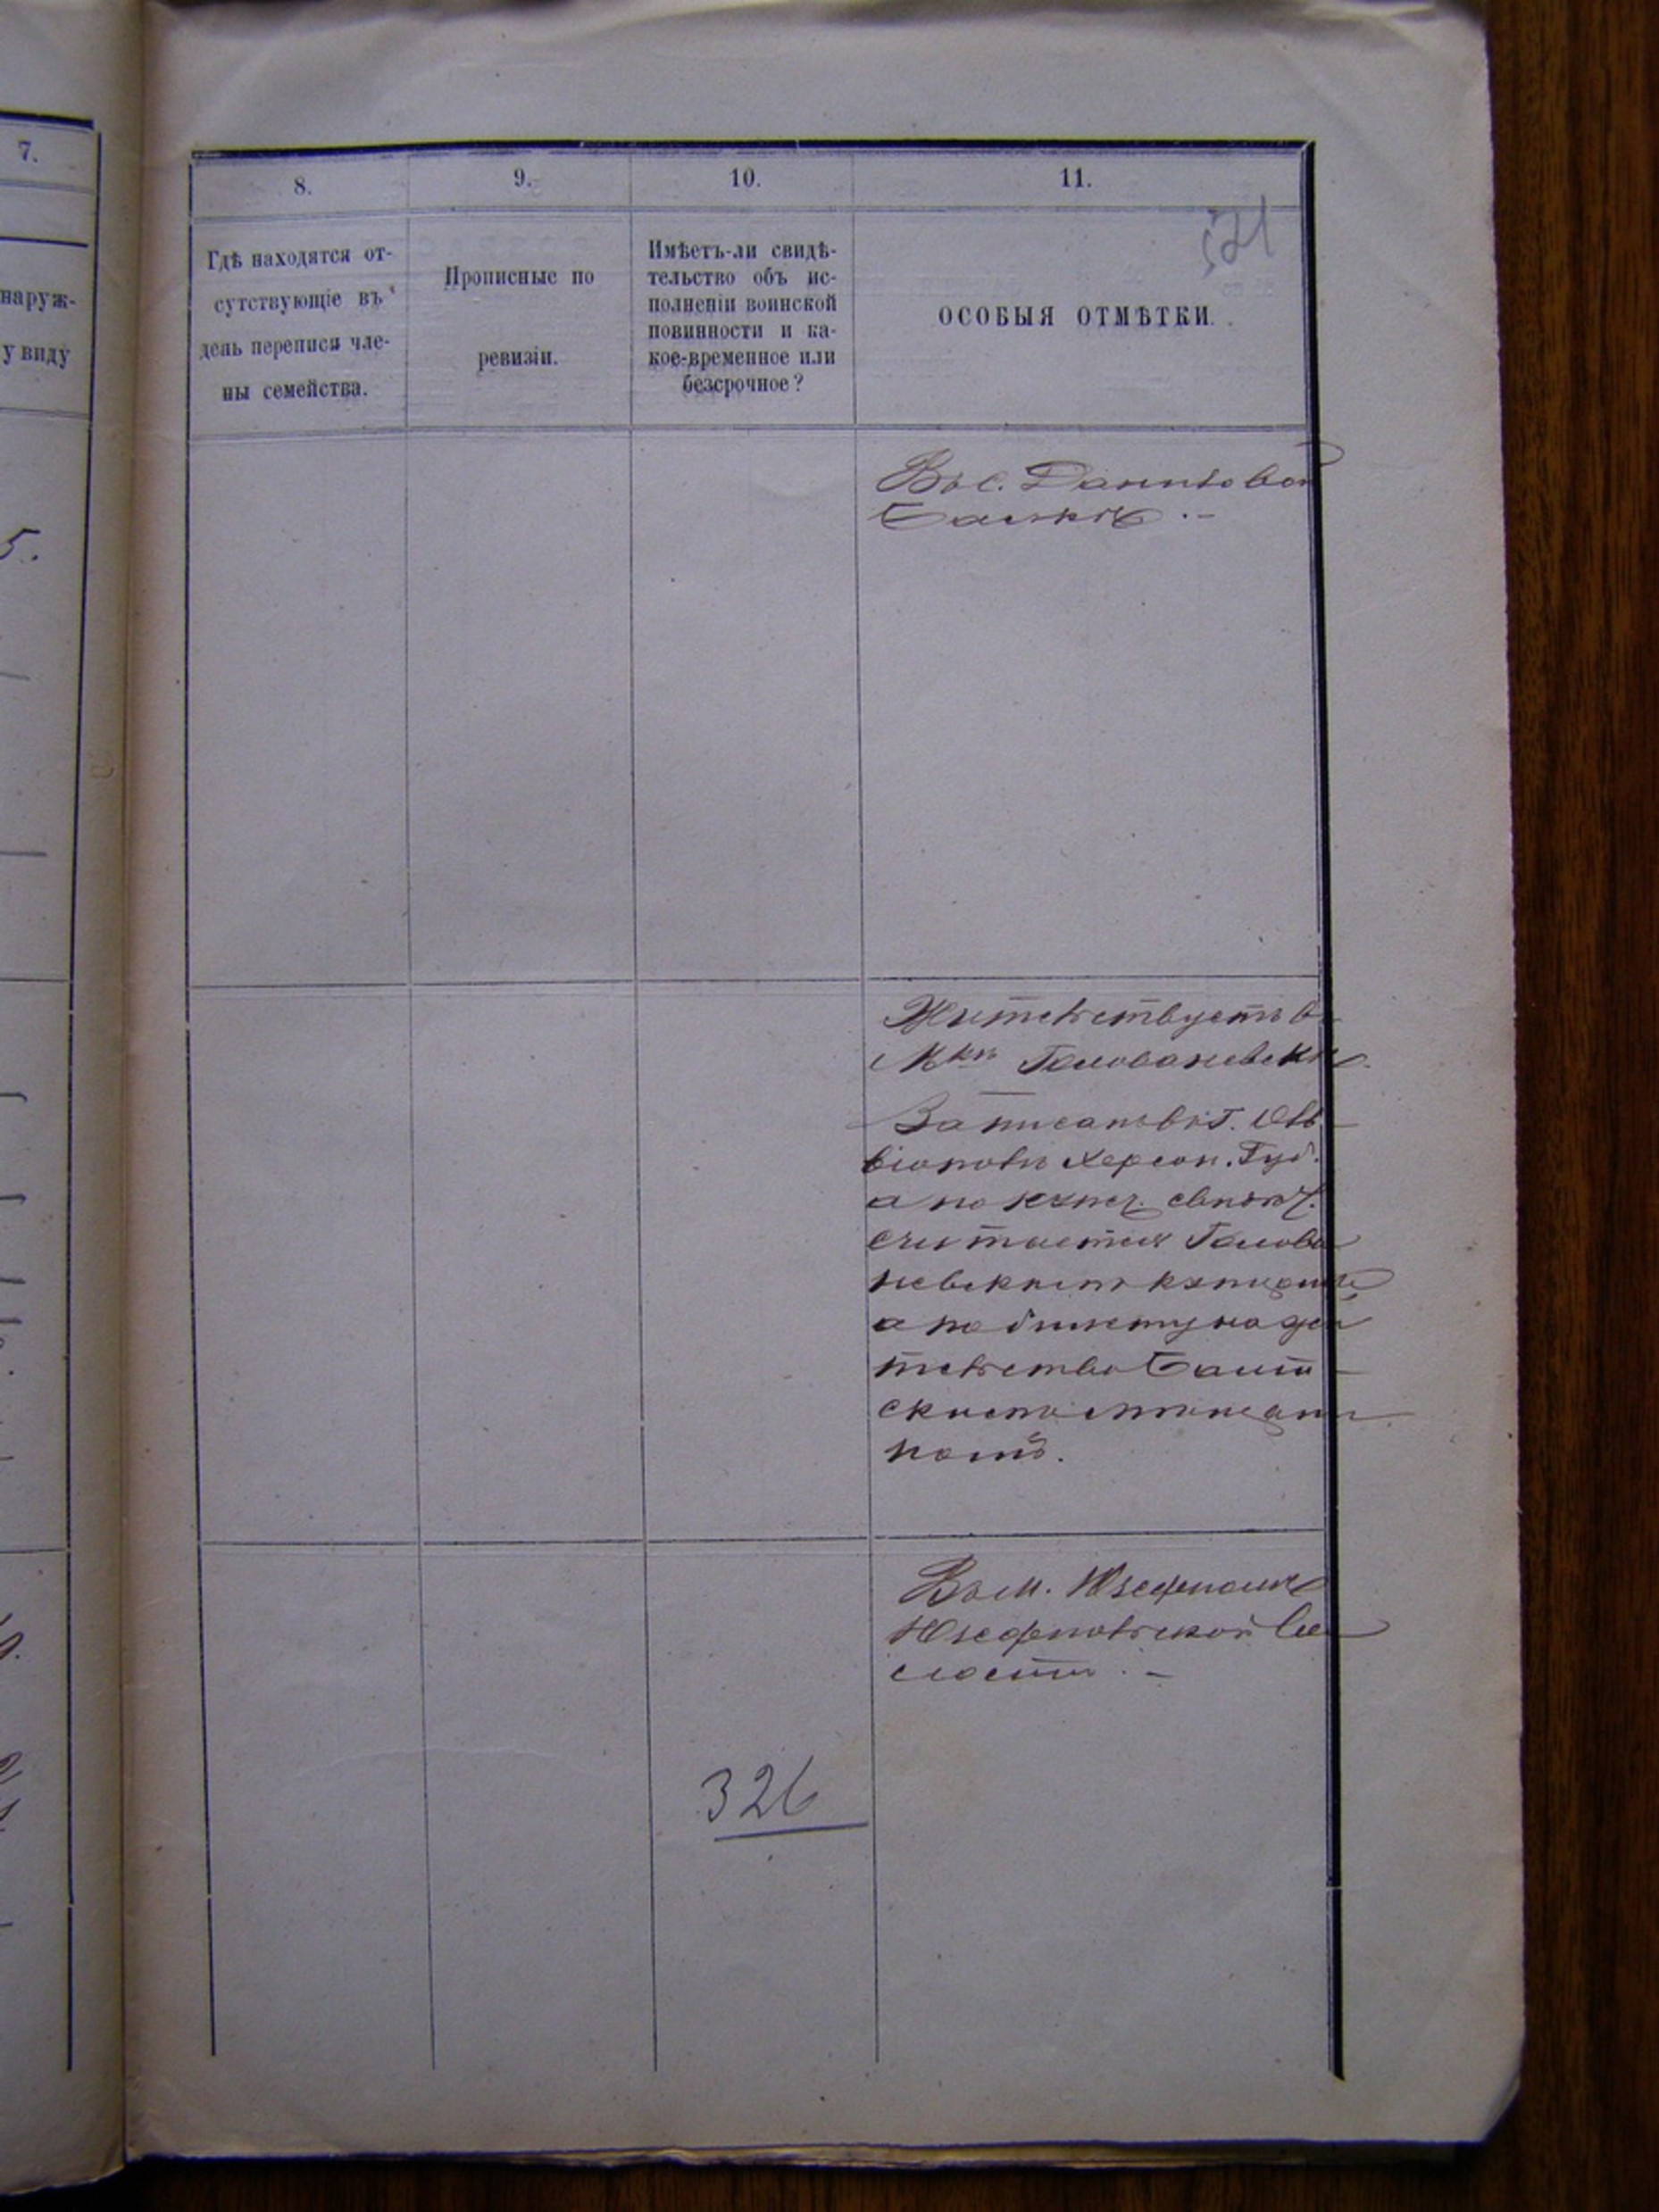 7.
наруж-
у виду
5.
8.
9.
10.
11.
521
Гдѣ находятся от-
сутствующіе въ
день переписи чле-
ны семейства.
Прописные по
ревизіи.
Имѣетъ-ли свидѣ-
тельство объ ис-
полненіи воинской
повинности и ка-
кое-временное или
безсрочное?
ОСОБЫЯ ОТМѢТКИ.
Въ с. Даниловой
Балкѣ .-
Жительствуетъ в
Мкѣ Голованевскѣ.
Записанъ въ г.
Херсон. Губ.
а по купеч.
считается Голова
невскимъ купцомъ
а по билету на жи
тельство Балт
скимъ мѣщани
номъ.
Въ м. Юзефполѣ
Юзефпольской Во
лости .-
326